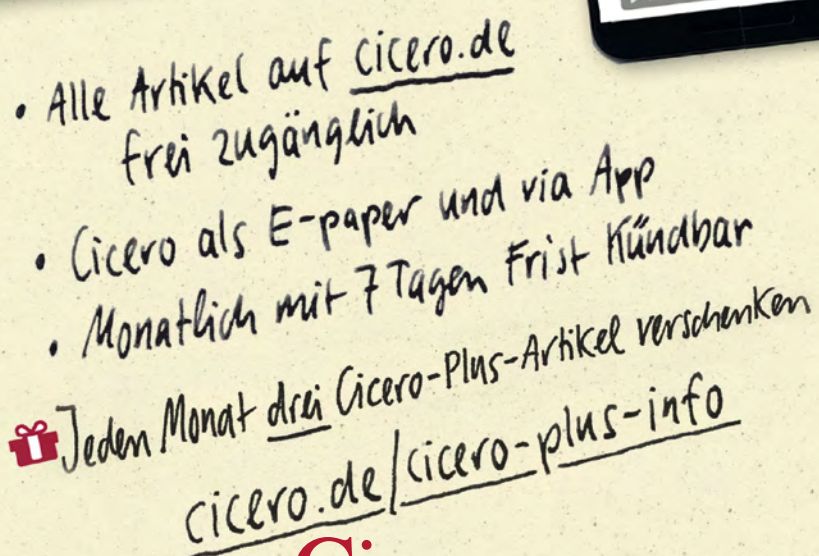 • Alle Artikel auf cicero.de
frei zugänglich
• Cicero als E-paper und via App
• Monatlich mit 7 Tagen Frist Kündbar
Jeden Monat drei Cicero-Plus-Artikel verschenken
cicero.de/cicero-plus-info